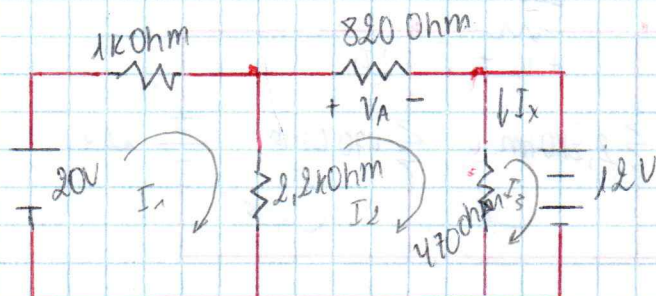 1kOhm
820 Ohm
+ VA -
Ix
20V
I1
2,2kOhm
I2
470Ohm
I3
12V